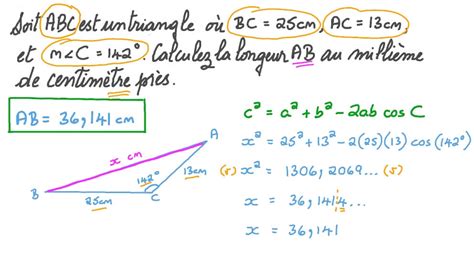 Soit ABC est un triangle où BC = 25cm, AC = 13cm,
et m∠C = 142°. Calculez la longeur AB au millième
de centimètre près.
AB = 36,141 cm
c² = a² + b² - 2ab cos C
x² = 25² + 13² - 2(25)(13) cos (142°)
(5) x² = 1306,2069... (5)
x = 36,1414...
x = 36,141
A
x cm
142°
13cm
B
C
25cm